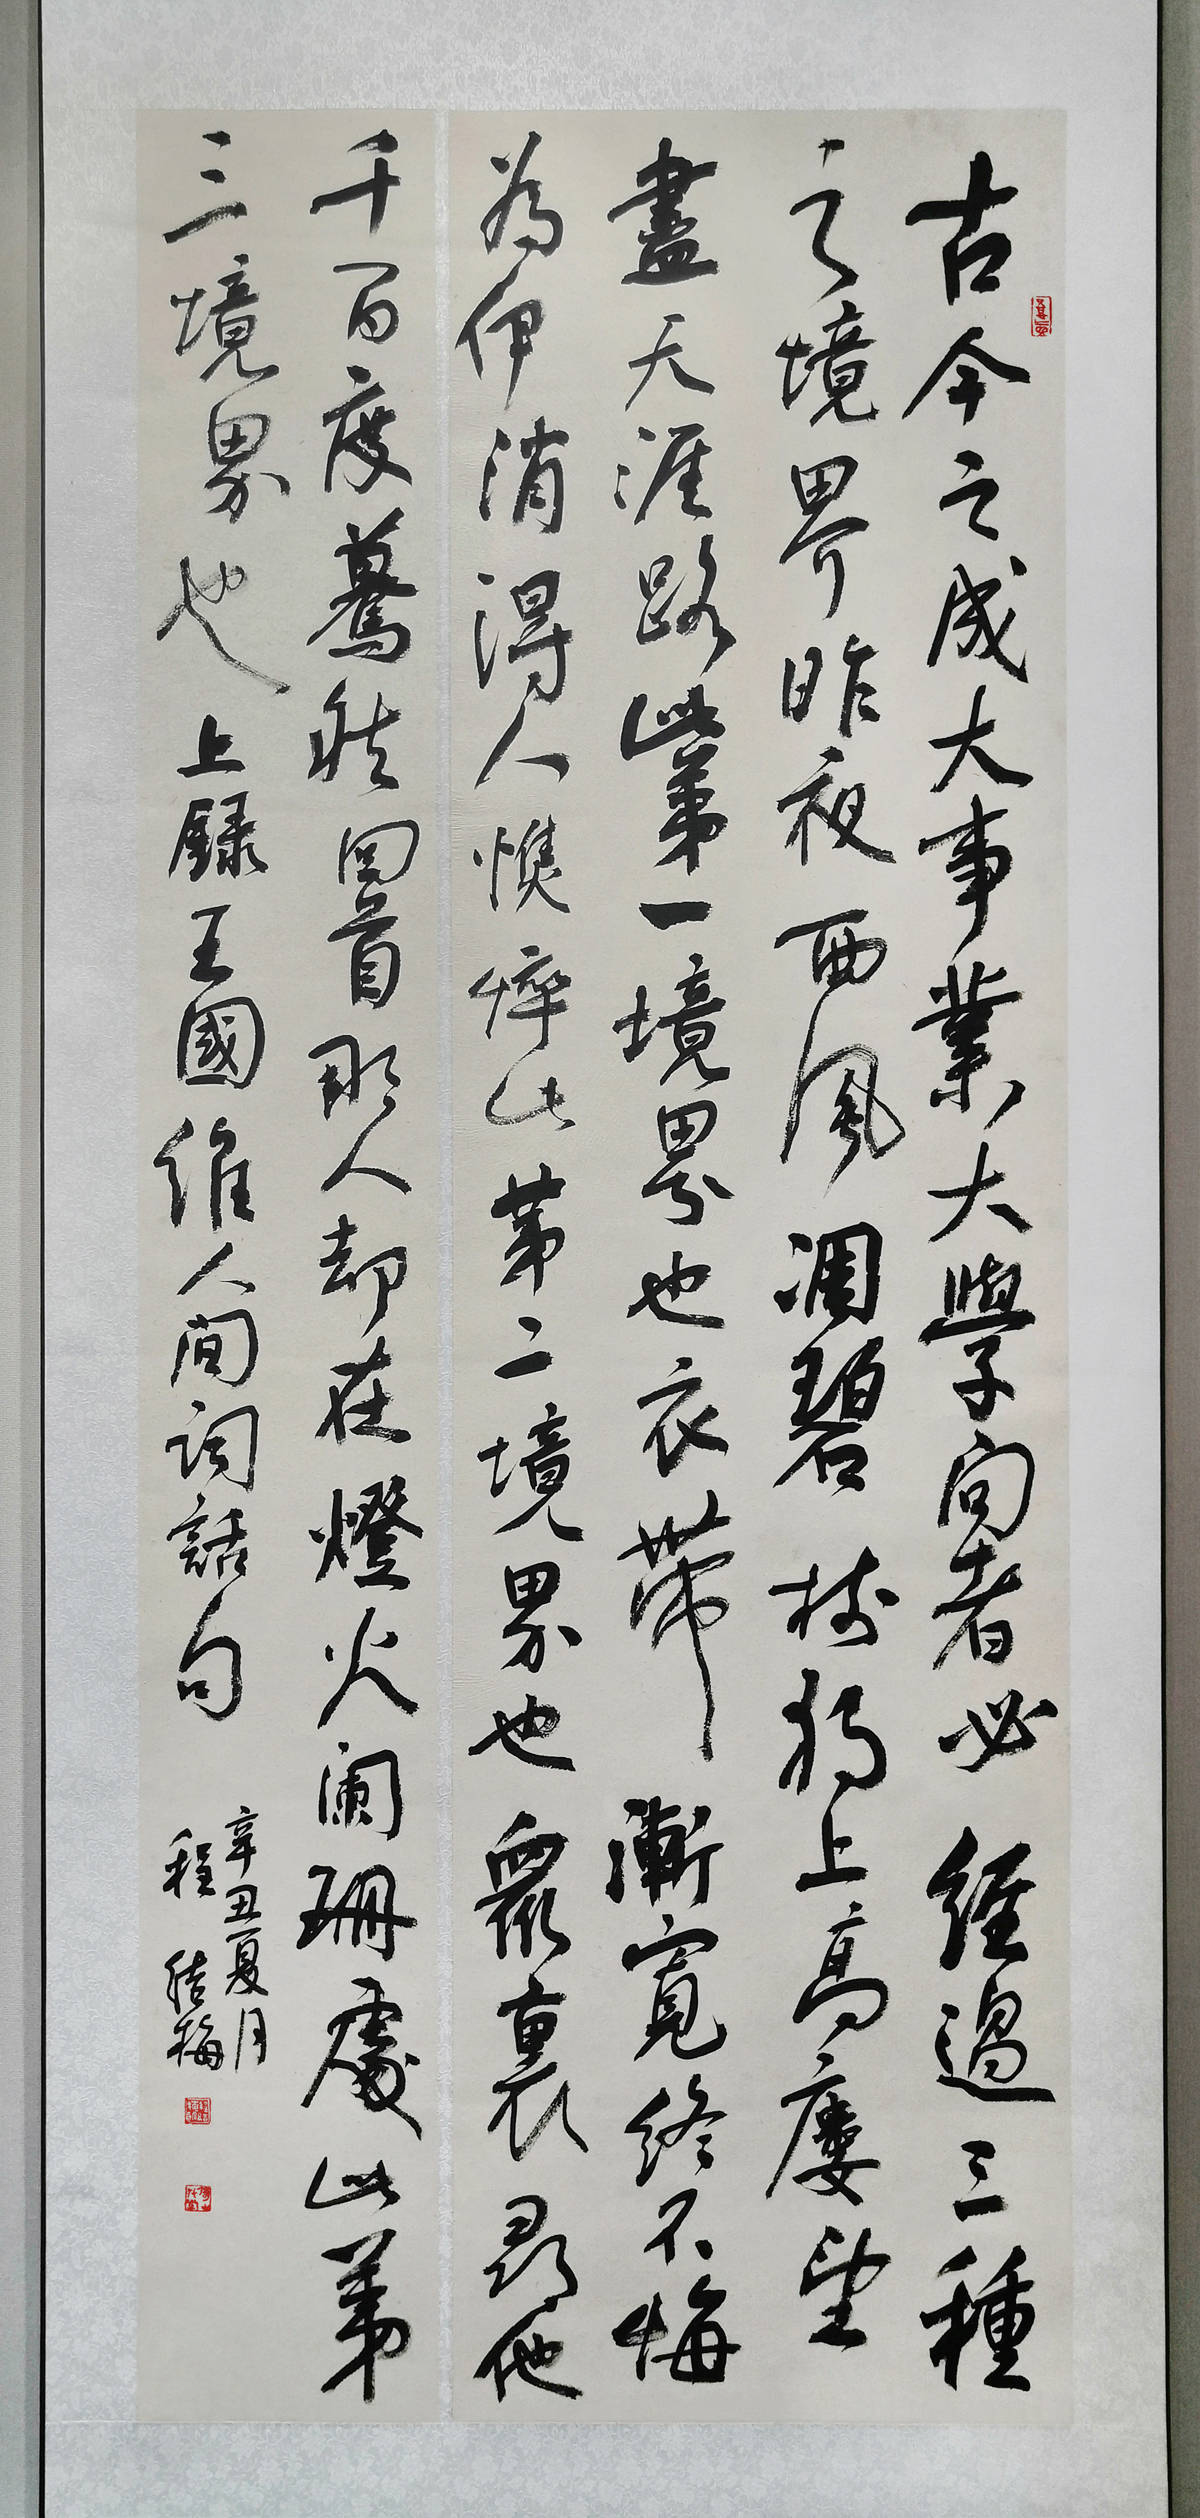 古今之成大事業大學问者必經過三種
之境界昨夜西風凋碧樹獨上高樓望
盡天涯路此第一境界也衣帶漸寬終不悔
為伊消得人憔悴此第二境界也眾裏尋他
千百度驀然回首那人却在燈火阑珊處此第
三境界也上録王國维人间詞話句
辛丑夏月
程結梅